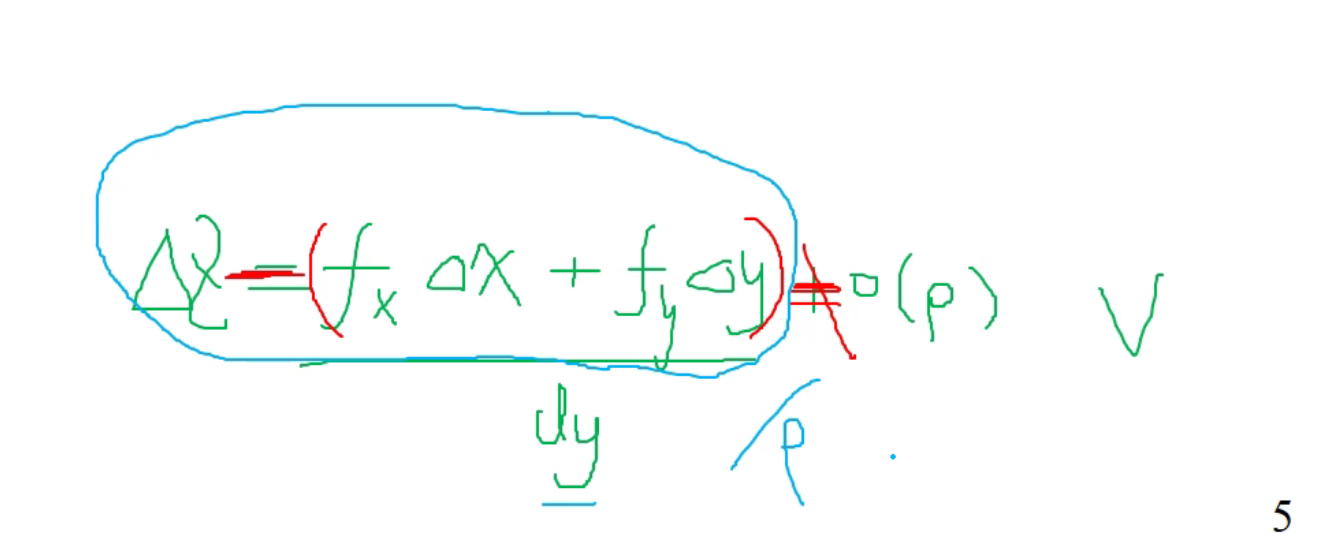 Δz = (f_x Δx + f_y Δy) = o(ρ) V
dy /ρ .
5